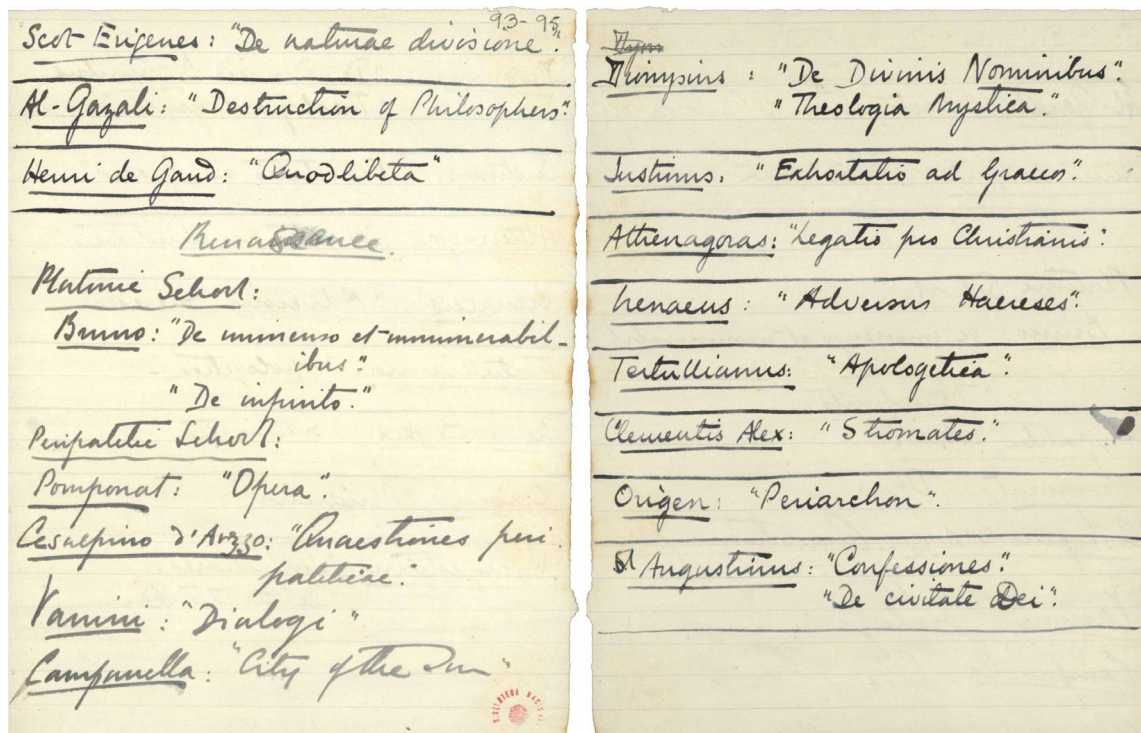 93-95
Scot Erigenes: "De naturae divisione".
Al-Gazali: "Destruction of Philosophers".
Henri de Gand: "Quodlibeta"
Renaissance.
Platonic School:
Bruno: "De immenso et innumerabil-
ibus".
"De infinito."
Peripatetic School:
Pomponat: "Opera".
Cesalpino d'Arezzo: "Quaestiones peri
pateticae".
Vanini: "Dialogi"
Campanella: "City of the Sun"
BIBLIOTECA NACIONAL
Dyon
Dionysius: "De Divinis Nominibus".
"Theologia Mystica."
Justinus. "Exhortatio ad Graecos".
Athenagoras: "Legatio pro Christianis".
Irenaeus: "Adversus Haereses".
Tertullianus: "Apologetica".
Clementis Alex: "Stromates."
Origen: "Periarchon".
St Augustinus: "Confessiones".
"De civitate Dei".